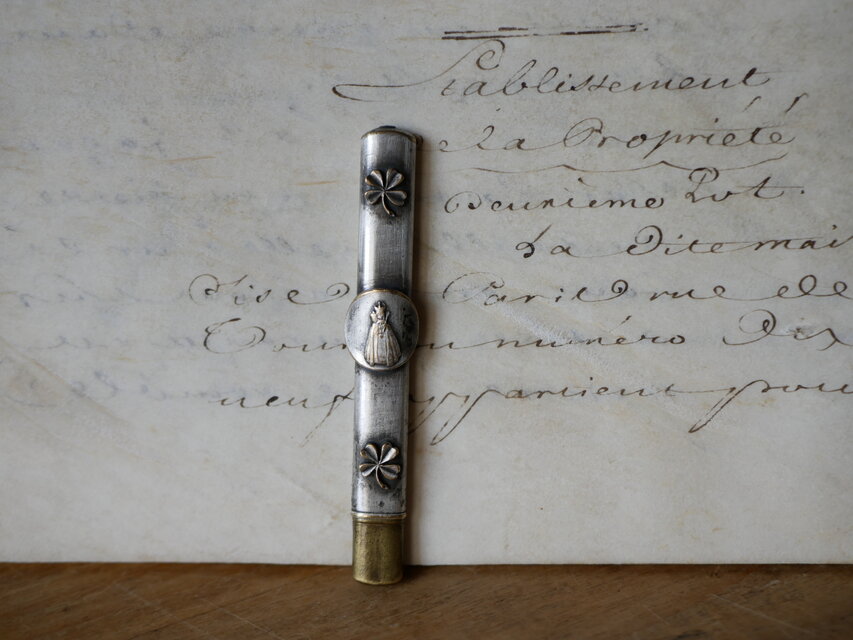 Etablissement
de la Propriété
Deuxieme Lot.
La Dite mai
Sise a Paris rue de
numéro Dix
neuf appartient pour